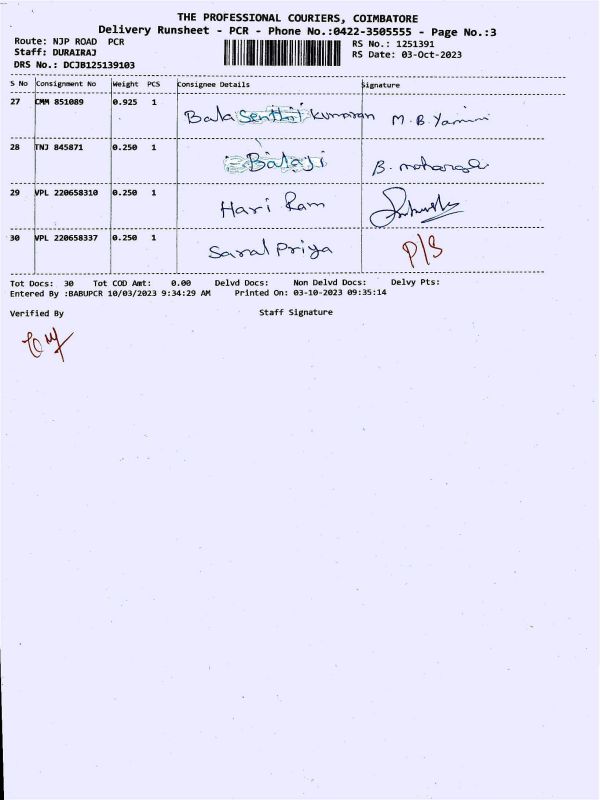 THE PROFESSIONAL COURIERS, COIMBATORE
Delivery Runsheet - PCR - Phone No.:0422-3505555 - Page No.:3
Route: NJP ROAD PCR RS No.: 1251391
Staff: DURAIRAJ RS Date: 03-Oct-2023
DRS No.: DCJB125139103
S No Consignment No Weight PCS Consignee Details Signature
27 CMM 851089 0.925 1 Bala Senthil Kumaran M.B. Yamini
28 TNJ 845871 0.250 1 Balaji B.
29 VPL 220658310 0.250 1 Hari Ram
30 VPL 220658337 0.250 1 Saral Priya P/S
Tot Docs: 30 Tot COD Amt: 0.00 Delvd Docs: Non Delvd Docs: Delvy Pts:
Entered By :BABUPCR 10/03/2023 9:34:29 AM Printed On: 03-10-2023 09:35:14
Verified By Staff Signature